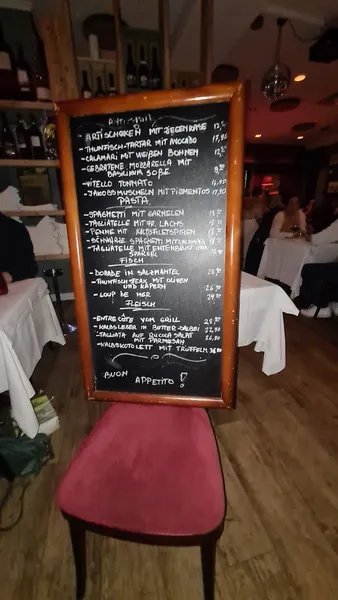 ANTIPASTI
ARTISCHOKEN MIT ZIEGENKÄSE
- THUNFISCH-TARTAR MIT AVOCADO 17,90
- CALAMARI MIT WEIßEN BOHNEN
- GEBRATENE MOZZARELLA MIT
BASILIKUM SOßE
- VITELLO TONNATO
- JAKOBSMUSCHELN MIT PIEMENTOS 17,90
PASTA
- SPAGHETTI MIT GARNELEN
- TAGLIATELLE MIT LACHS
- PENNE MIT KALBSFILETSPITZEN
- SCHWARZE SPAGHETTI MIT
- TAGLIATELLE MIT ENTENBRUST UND
SPARGEL
FISCH
- DORADE IN SALZMANTEL
- THUNFISCHSTEAK MIT OLIVEN
UND KAPERN 26,90
- LOUP DE MER
FLEISCH
- ENTRECÔTE VOM GRILL
- KALBSLEBER IN BUTTER-SALBEI
- TALIATA AUF RUCOLA SALAT
MIT PARMESAN
- KALBSKOTOLETT MIT TRÜFFELN
BUON
APPETITO!